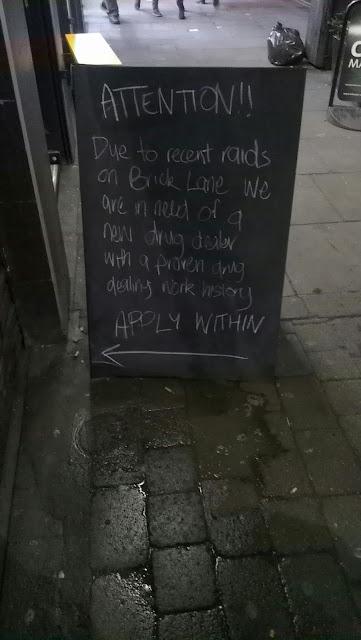 ATTENTION!!
Due to recent raids
on Brick Lane we
are in need of a
new drug dealer
with a proven drug
dealing work history
APPLY WITHIN